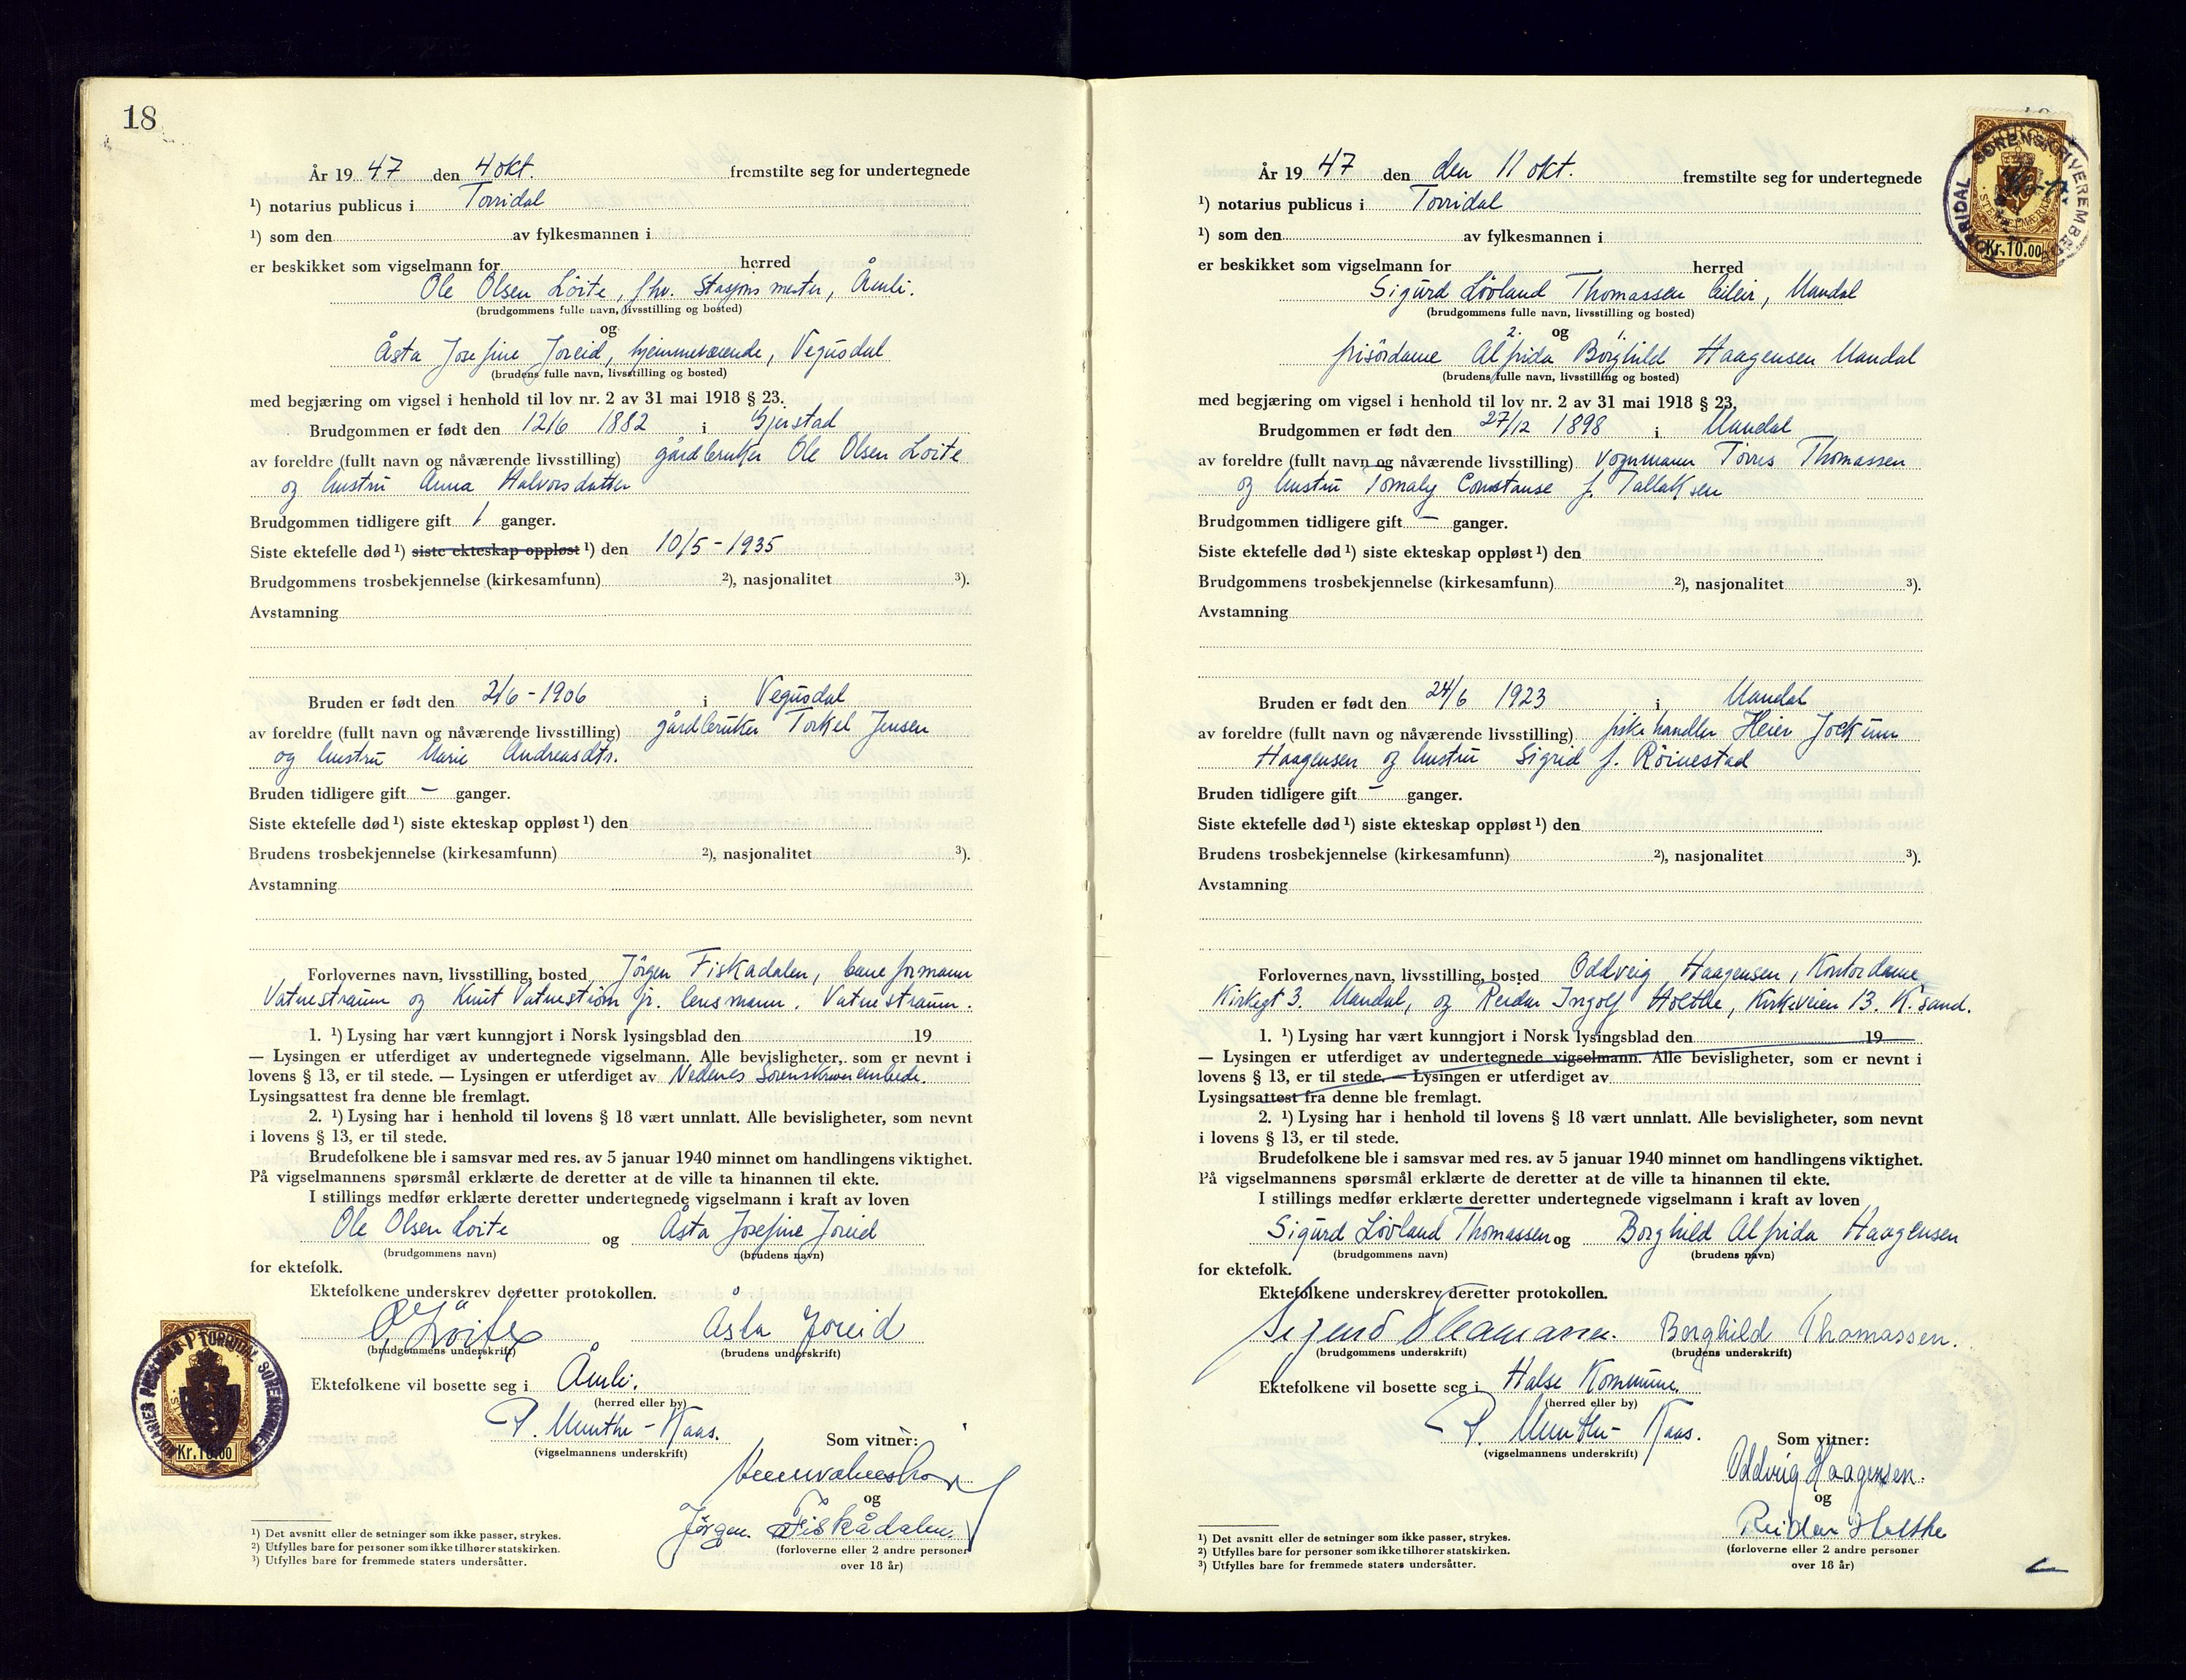 18
År 19 47 den 4 okt. fremstilte seg for undertegnede
¹) notarius publicus i Torridal
¹) som den av fylkesmannen i
er beskikket som vigselmann for herred
Ole Olsen Löite, fhv. Stasjonsmester, Åmli.
(brudgommens fulle navn, livsstilling og bosted)
og
Åsta Josefine Joreid, hjemmeværende, Vegusdal
(brudens fulle navn, livsstilling og bosted)
med begjæring om vigsel i henhold til lov nr. 2 av 31 mai 1918 § 23.
Brudgommen er født den 12/6 1882 i Gjerstad
av foreldre (fullt navn og nåværende livsstilling) gårdbruker Ole Olsen Löite
og hustru Anna Halvorsdatter
Brudgommen tidligere gift 1 ganger.
Siste ektefelle død ¹) siste ekteskap oppløst ¹) den 10/5 - 1935
Brudgommens trosbekjennelse (kirkesamfunn) ²), nasjonalitet ³).
Avstamning
Bruden er født den 2/6 - 1906 i Vegusdal
av foreldre (fullt navn og nåværende livsstilling) gårdbruker Torkel Jensen
og hustru Marie Andreasdtr.
Bruden tidligere gift – ganger.
Siste ektefelle død ¹) siste ekteskap oppløst ¹) den
Brudens trosbekjennelse (kirkesamfunn) ²), nasjonalitet ³).
Avstamning
Forlovernes navn, livsstilling, bosted Jörgen Fiskadalen, baneformann
Vatnestraum og Knut Vatneström jr. lensmann. Vatnestraum.
1. ¹) Lysing har vært kunngjort i Norsk lysingsblad den 19
— Lysingen er utferdiget av undertegnede vigselmann. Alle bevisligheter, som er nevnt i
lovens § 13, er til stede. — Lysingen er utferdiget av Nedenes Sorenskriverembede.
Lysingsattest fra denne ble fremlagt.
2. ¹) Lysing har i henhold til lovens § 18 vært unnlatt. Alle bevisligheter, som nevnt
i lovens § 13, er til stede.
Brudefolkene ble i samsvar med res. av 5 januar 1940 minnet om handlingens viktighet.
På vigselmannens spørsmål erklærte de deretter at de ville ta hinannen til ekte.
I stillings medfør erklærte deretter undertegnede vigselmann i kraft av loven
Ole Olsen Loite og Åsta Josefine Joreid
(brudgommens navn) (brudens navn)
for ektefolk.
Ektefolkene underskrev deretter protokollen.
O. Löite Åsta Joreid
(brudgommens underskrift) (brudens underskrift)
Ektefolkene vil bosette seg i Åmli.
(herred eller by)
P. Munthe-Kaas.
(vigselmannens underskrift)
Som vitner:
og
Jörgen Fiskådalen
(forloverne eller 2 andre personer
over 18 år)
¹) Det avsnitt eller de setninger som ikke passer, strykes.
²) Utfylles bare for personer som ikke tilhører statskirken.
³) Utfylles bare for fremmede staters undersåtter.
Kr. 10.00
År 19 47 den den 11 okt. fremstilte seg for undertegnede
¹) notarius publicus i Torridal
¹) som den av fylkesmannen i
er beskikket som vigselmann for herred
Sigurd Lövland Thomassen, Mandal
(brudgommens fulle navn, livsstilling og bosted)
2. og 1.
frisördame Alfrida Borghild Haagensen Mandal
(brudens fulle navn, livsstilling og bosted)
med begjæring om vigsel i henhold til lov nr. 2 av 31 mai 1918 § 23.
Brudgommen er født den 27/12 1898 i Mandal
av foreldre (fullt navn og nåværende livsstilling) vognmann Torres Thomassen
og hustru Tomaly Constanse f. Tallaksen
Brudgommen tidligere gift – ganger.
Siste ektefelle død ¹) siste ekteskap oppløst ¹) den
Brudgommens trosbekjennelse (kirkesamfunn) ²), nasjonalitet ³).
Avstamning
Bruden er født den 24/6 1923 i Mandal
av foreldre (fullt navn og nåværende livsstilling) fiskehandler Heier Jockum
Haagensen og hustru Sigrid f. Röinestad
Bruden tidligere gift – ganger.
Siste ektefelle død ¹) siste ekteskap oppløst ¹) den
Brudens trosbekjennelse (kirkesamfunn) ²), nasjonalitet ³).
Avstamning
Forlovernes navn, livsstilling, bosted Oddveig Haagensen, Kontordame
Kirkegt 3. Mandal, og Reidar Ingolf Holthe, Kirkeveien 13. K.sand.
1. ¹) Lysing har vært kunngjort i Norsk lysingsblad den 19
— Lysingen er utferdiget av undertegnede vigselmann. Alle bevisligheter, som er nevnt i
lovens § 13, er til stede. — Lysingen er utferdiget av
Lysingsattest fra denne ble fremlagt.
2. ¹) Lysing har i henhold til lovens § 18 vært unnlatt. Alle bevisligheter, som nevnt
i lovens § 13, er til stede.
Brudefolkene ble i samsvar med res. av 5 januar 1940 minnet om handlingens viktighet.
På vigselmannens spørsmål erklærte de deretter at de ville ta hinannen til ekte.
I stillings medfør erklærte deretter undertegnede vigselmann i kraft av loven
Sigurd Lövland Thomassen og Borghild Alfrida Haagensen
(brudgommens navn) (brudens navn)
for ektefolk.
Ektefolkene underskrev deretter protokollen.
Sigurd Thomassen. Borghild Thomassen.
(brudgommens underskrift) (brudens underskrift)
Ektefolkene vil bosette seg i Halse Kommune.
(herred eller by)
P. Munthe-Kaas.
(vigselmannens underskrift)
Som vitner:
Oddveig Haagensen.
og
Reidar Holthe
(forloverne eller 2 andre personer
over 18 år)
¹) Det avsnitt eller de setninger som ikke passer, strykes.
²) Utfylles bare for personer som ikke tilhører statskirken.
³) Utfylles bare for fremmede staters undersåtter.
Kr. 10.00